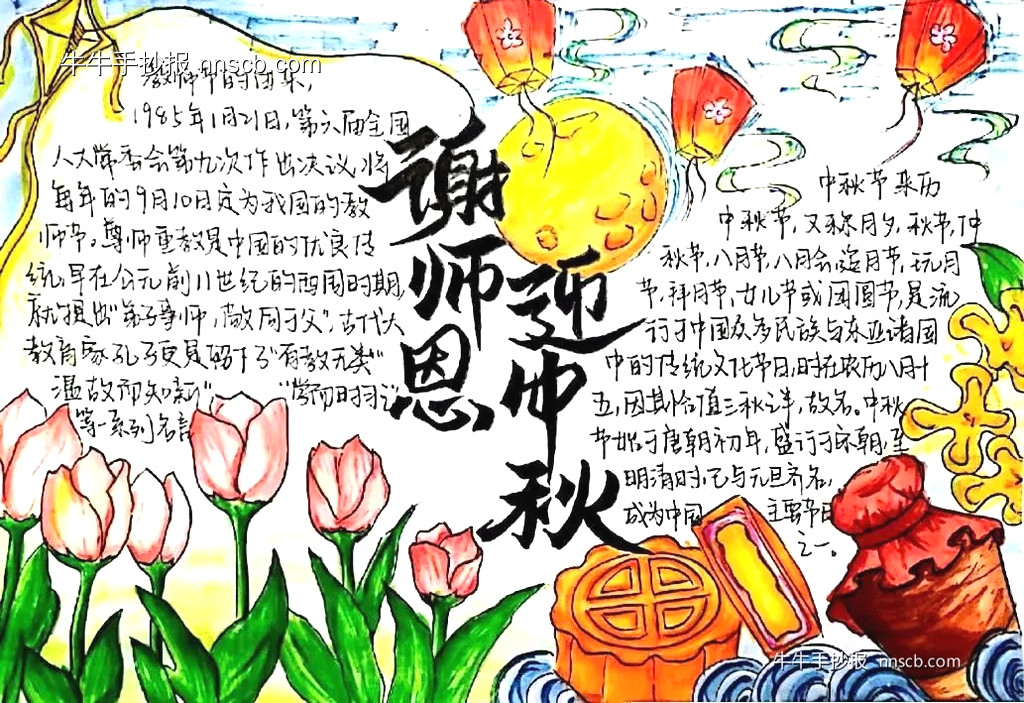 牛牛手抄报 nnscb.com
教师节的由来,
1985年1月21日,第六届全国
人大常委会第九次作出决议,将
每年的9月10日定为我国的教
师节。尊师重教是中国的优良传
统,早在公元前11世纪的西周时期,
就提出"弟子事师,敬同于父",古代大
教育家孔子更是留下了"有教无类"
温故而知新" "学而时习之
等一系列名言
谢师恩
迎中秋
中秋节来历
中秋节,又称月夕,秋节,仲
秋节,八月节,八月会,追月节,玩月
节,拜月节,女儿节或团圆节,是流
行于中国众多民族与东亚诸国
中的传统文化节日,时在农历八月十
五,因其恰值三秋之半,故名。中秋
节始于唐朝初年,盛行于宋朝,至
明清时,已与元旦齐名,
成为中国 主要节日
之一。
牛牛手抄报 nnscb.com